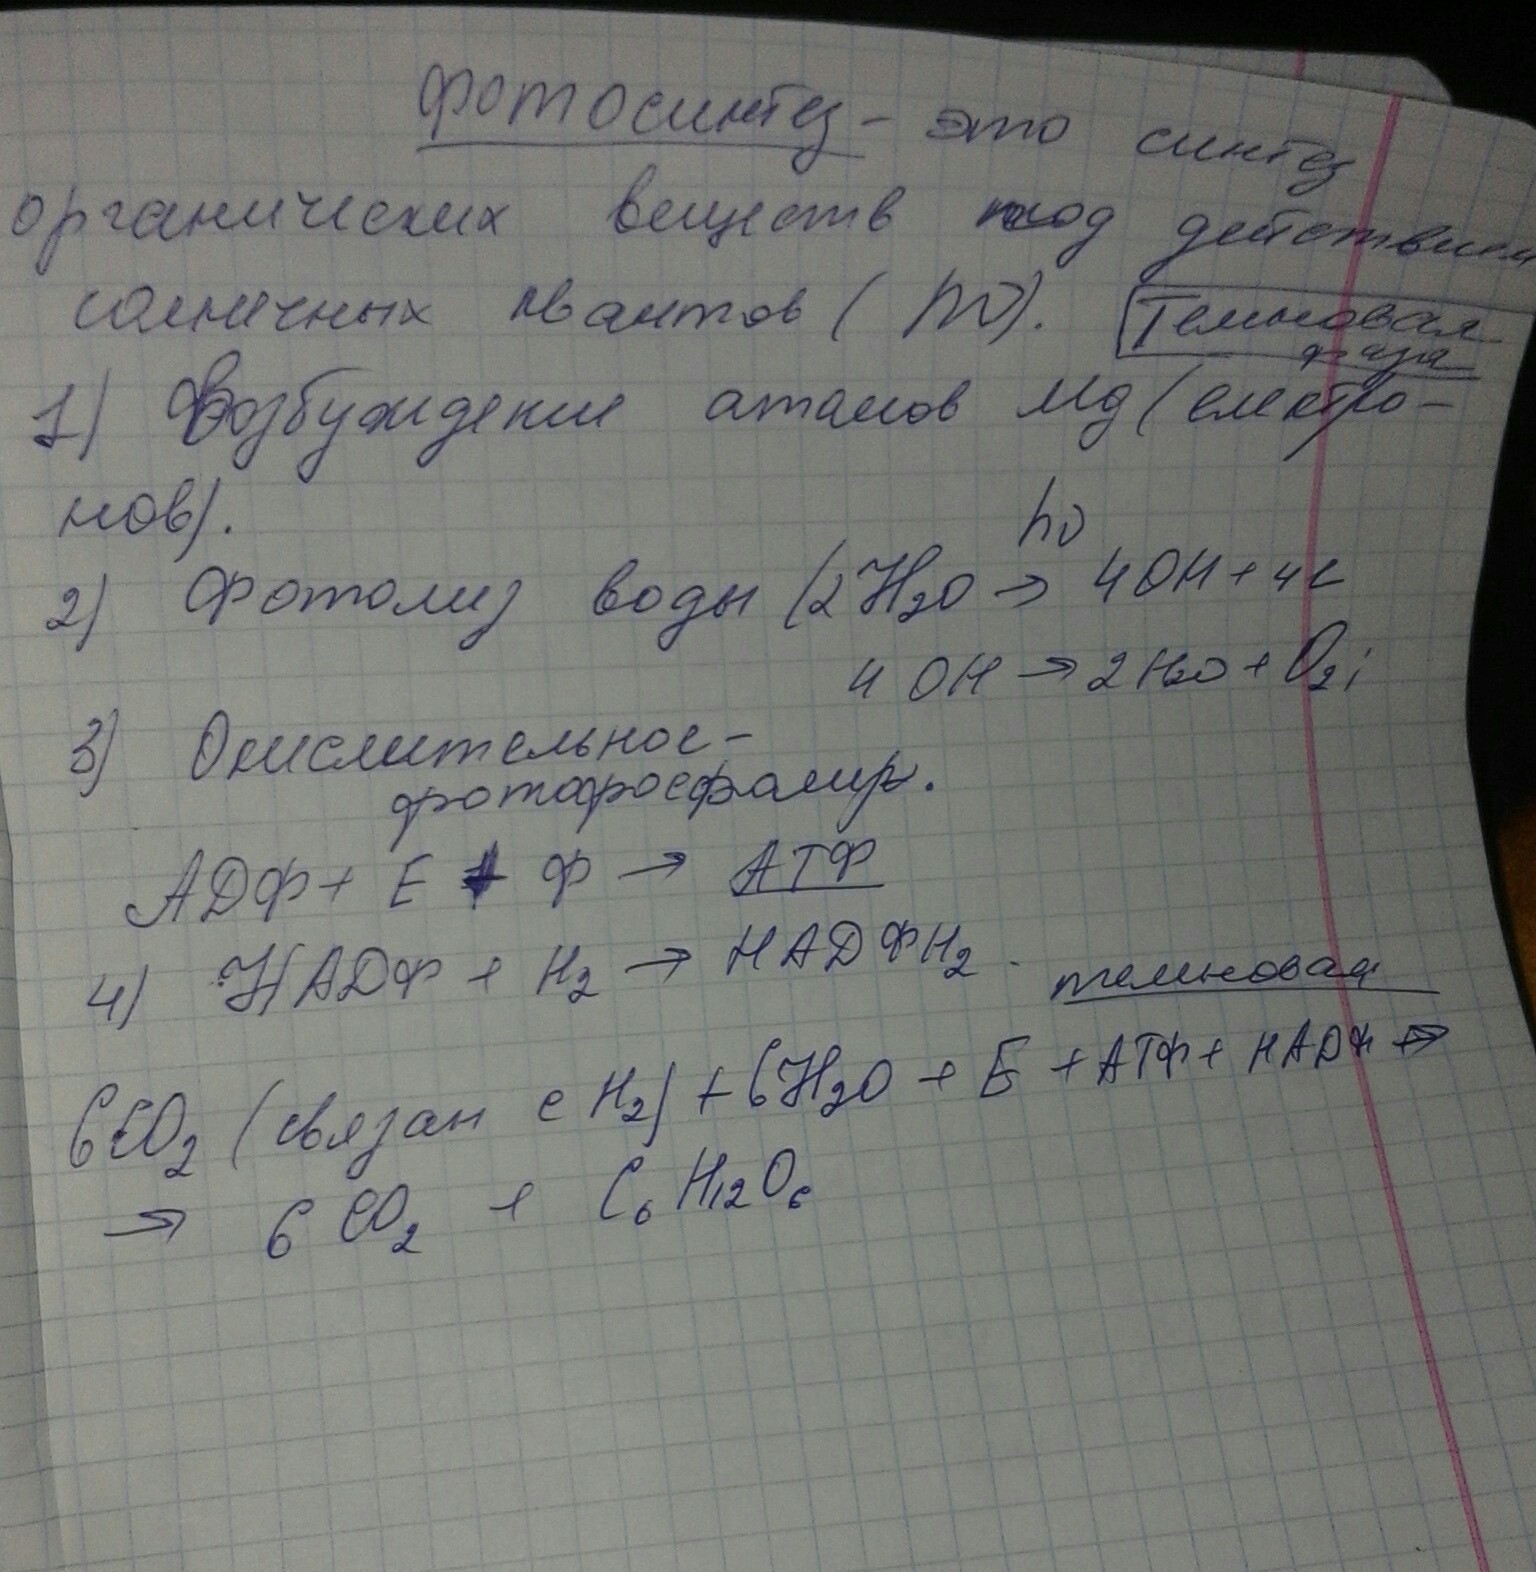 Фотосинтез - это синтез
органических веществ под действием
солничных квантов (hν). Темновая
фаза
1) Возбуждение атамов Mg (електро-
нов).
hν
2) Фотолиз воды (2H₂O → 4OH + 4e
4 OH → 2H₂O + O₂;
3) Окислительное -
фотофосфалир.
АДФ + E + Ф → АТФ
4) НАДФ + H₂ → НАДФH₂.
темновая
6CO₂ (связан с H₂) + 6H₂O + E + АТФ + НАДФ →
→ 6 CO₂ + C₆H₁₂O₆